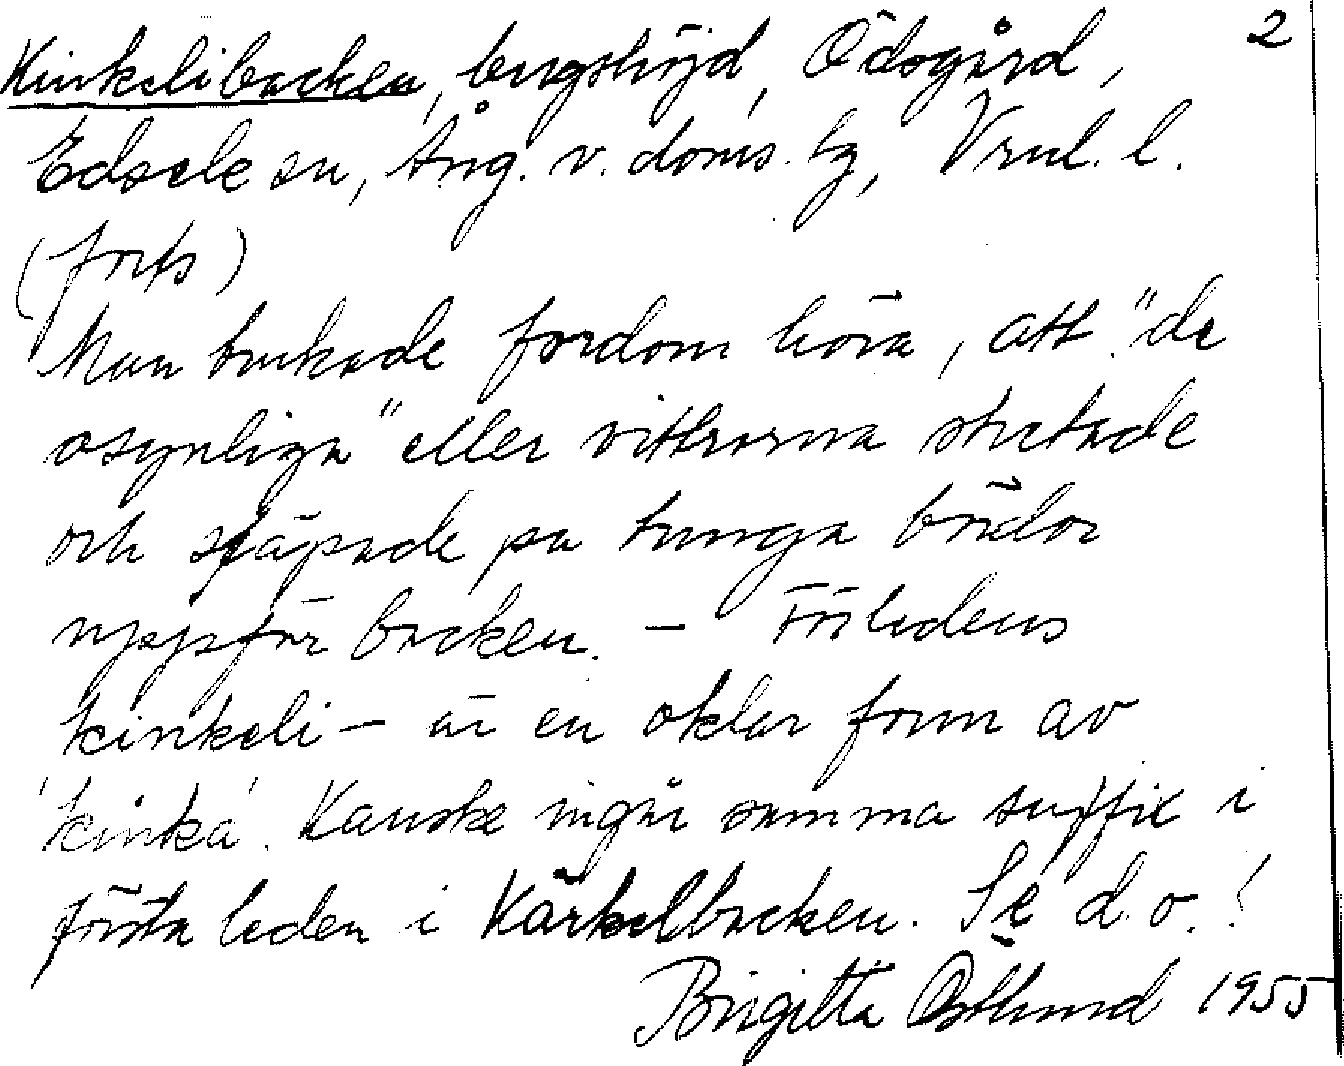 2
Kinkelibacken, bergshöjd, Ödsgård,
Edsele sn, Ång. v. doms. hg, Vnl. l.
(forts)
Man brukade fordom höra, att "de
osynliga" eller vittrorna stretade
och släpade på tunga bördor
uppför backen. – Förledens
kinkeli – är en oklar form av
'kinka'. Kanske ingår samma suffix i
första leden i Kärkelbacken. Se d.o.!
Brigitta Östlund 1955